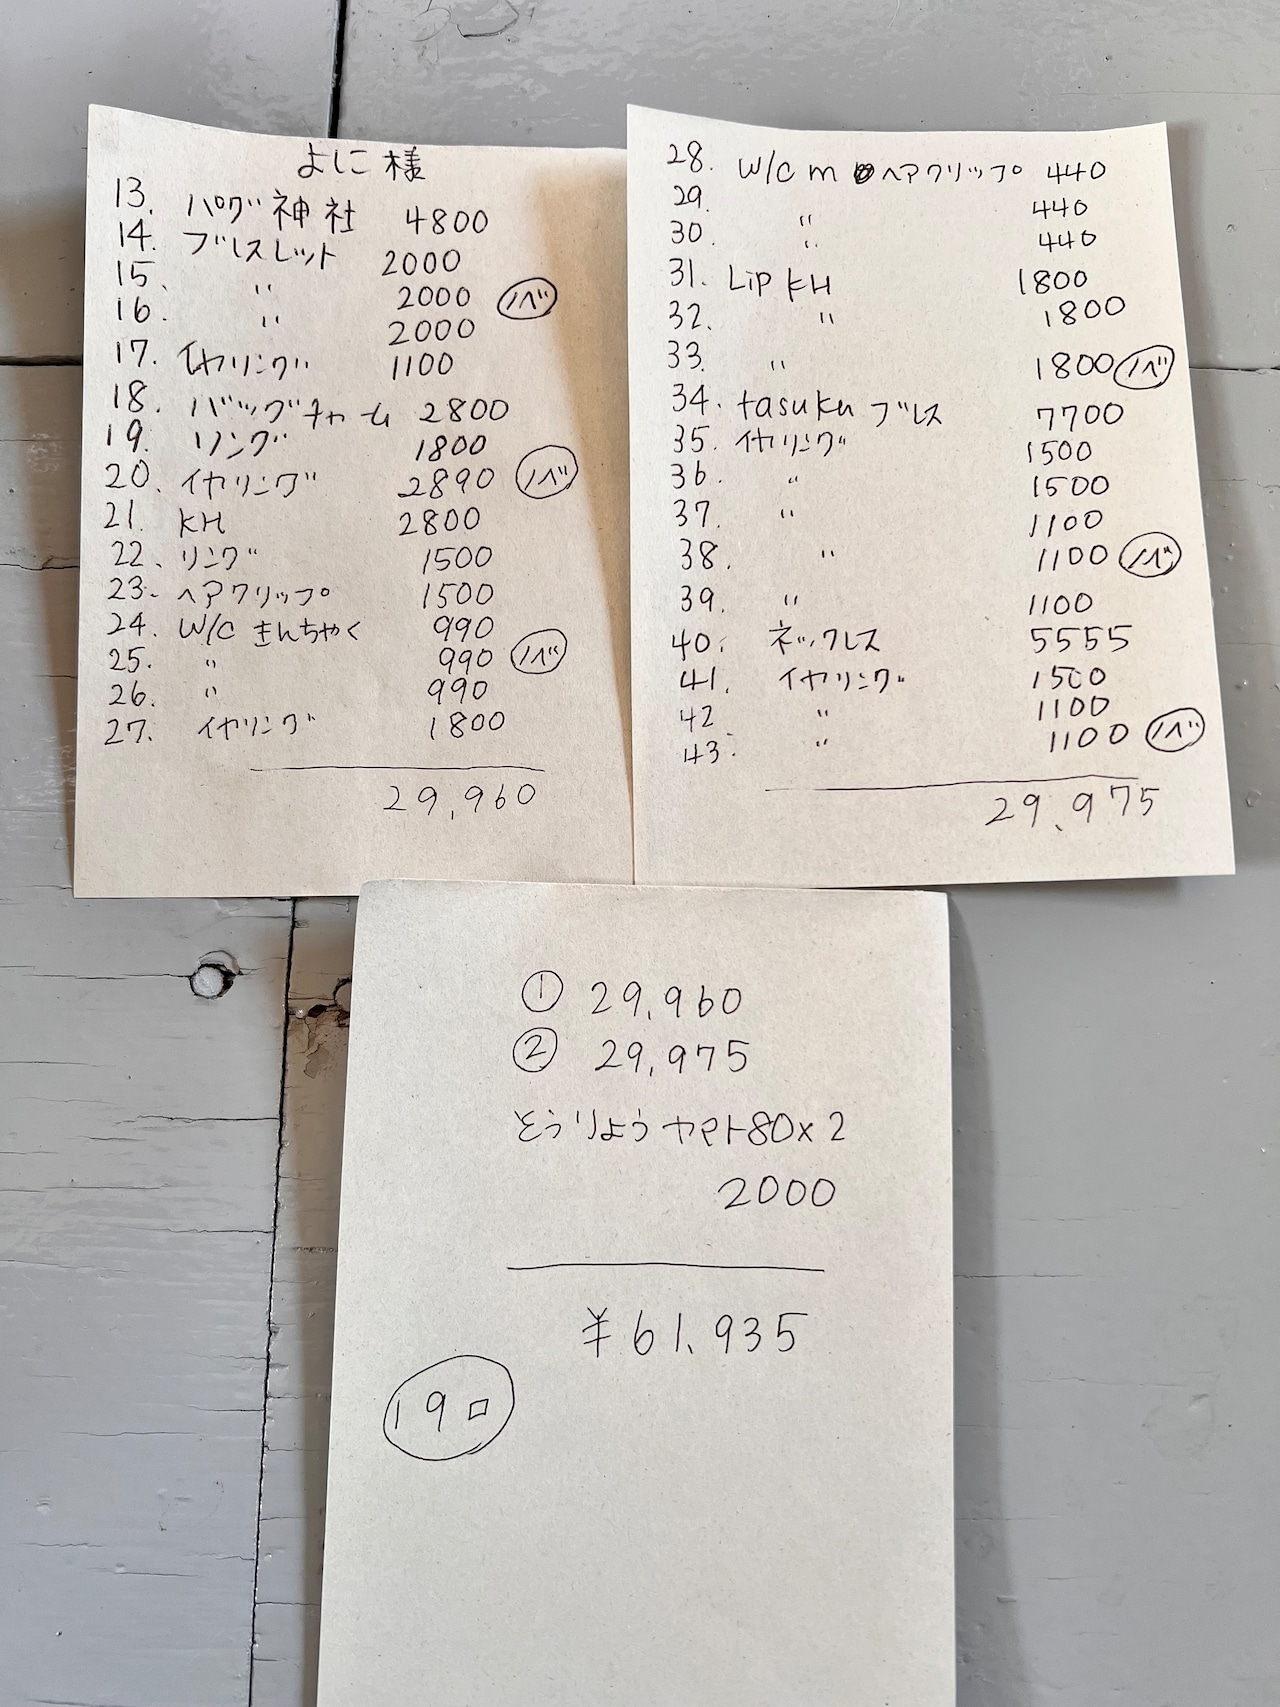 よしこ様
13. パグ神社 4800
14. ブレスレット 2000
15. 〃 2000 ノベ
16. 〃 2000
17. イヤリング 1100
18. バッグチャーム 2800
19. リング 1800
20. イヤリング 2890 ノベ
21. KH 2800
22. リング 1500
23. ヘアクリップ 1500
24. W/C きんちゃく 990
25. 〃 990 ノベ
26. 〃 990
27. イヤリング 1800
29,960
28. W/C m ヘアクリップ 440
29. 〃 440
30. 〃 440
31. Lip KH 1800
32. 〃 1800
33. 〃 1800 ノベ
34. tasuku ブレス 7700
35. イヤリング 1500
36. 〃 1500
37. 〃 1100
38. 〃 1100 ノベ
39. 〃 1100
40. ネックレス 5555
41. イヤリング 1500
42 〃 1100
43. 〃 1100 ノベ
29,975
① 29,960
② 29,975
そうりょう ヤマト80×2
2000
¥61,935
19口